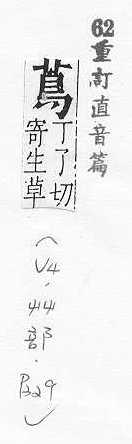 62重訂直音篇
蔦
丁了切
寄生草
(V4.艸部.P229)